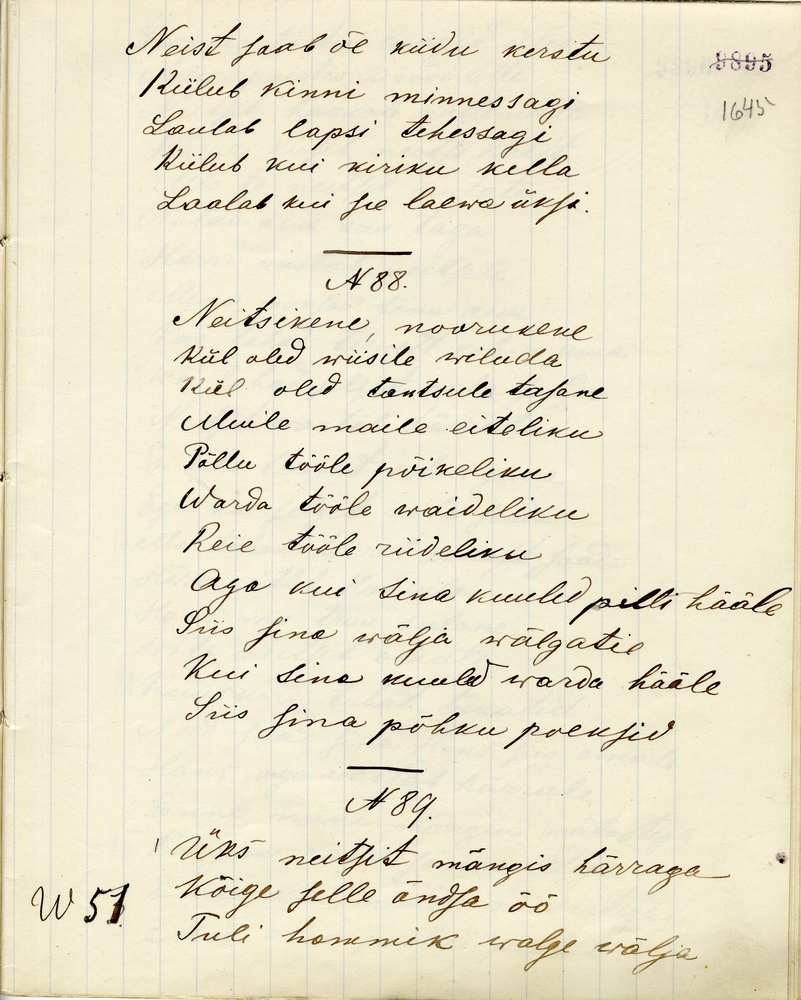 Neist saab õe kiidu kerstu
9895
1645
Külub kinni minnessagi
Laulab lapsi tehessagi
Külub kui kiriku kella
Laalab kui se laewa üksi.
N 88.
Neitsikene, noorukene
Kül oled wiisile wiluda
Kül oled tantsule tasane
Muile maile eiteliku
Põllu tööle põikeliku
Warda tööle waideliku
Reie tööle riideliku
Aga kui sina kuuled pilli hääle
Siis sina wälja wälgatie
Kui sina kuuled warda hääle
Siis sina põhku poeksid
N 89.
Üks neitsit mängis härraga
Kõige selle öndsa öö
W 51
Tuli hommik walge wälja